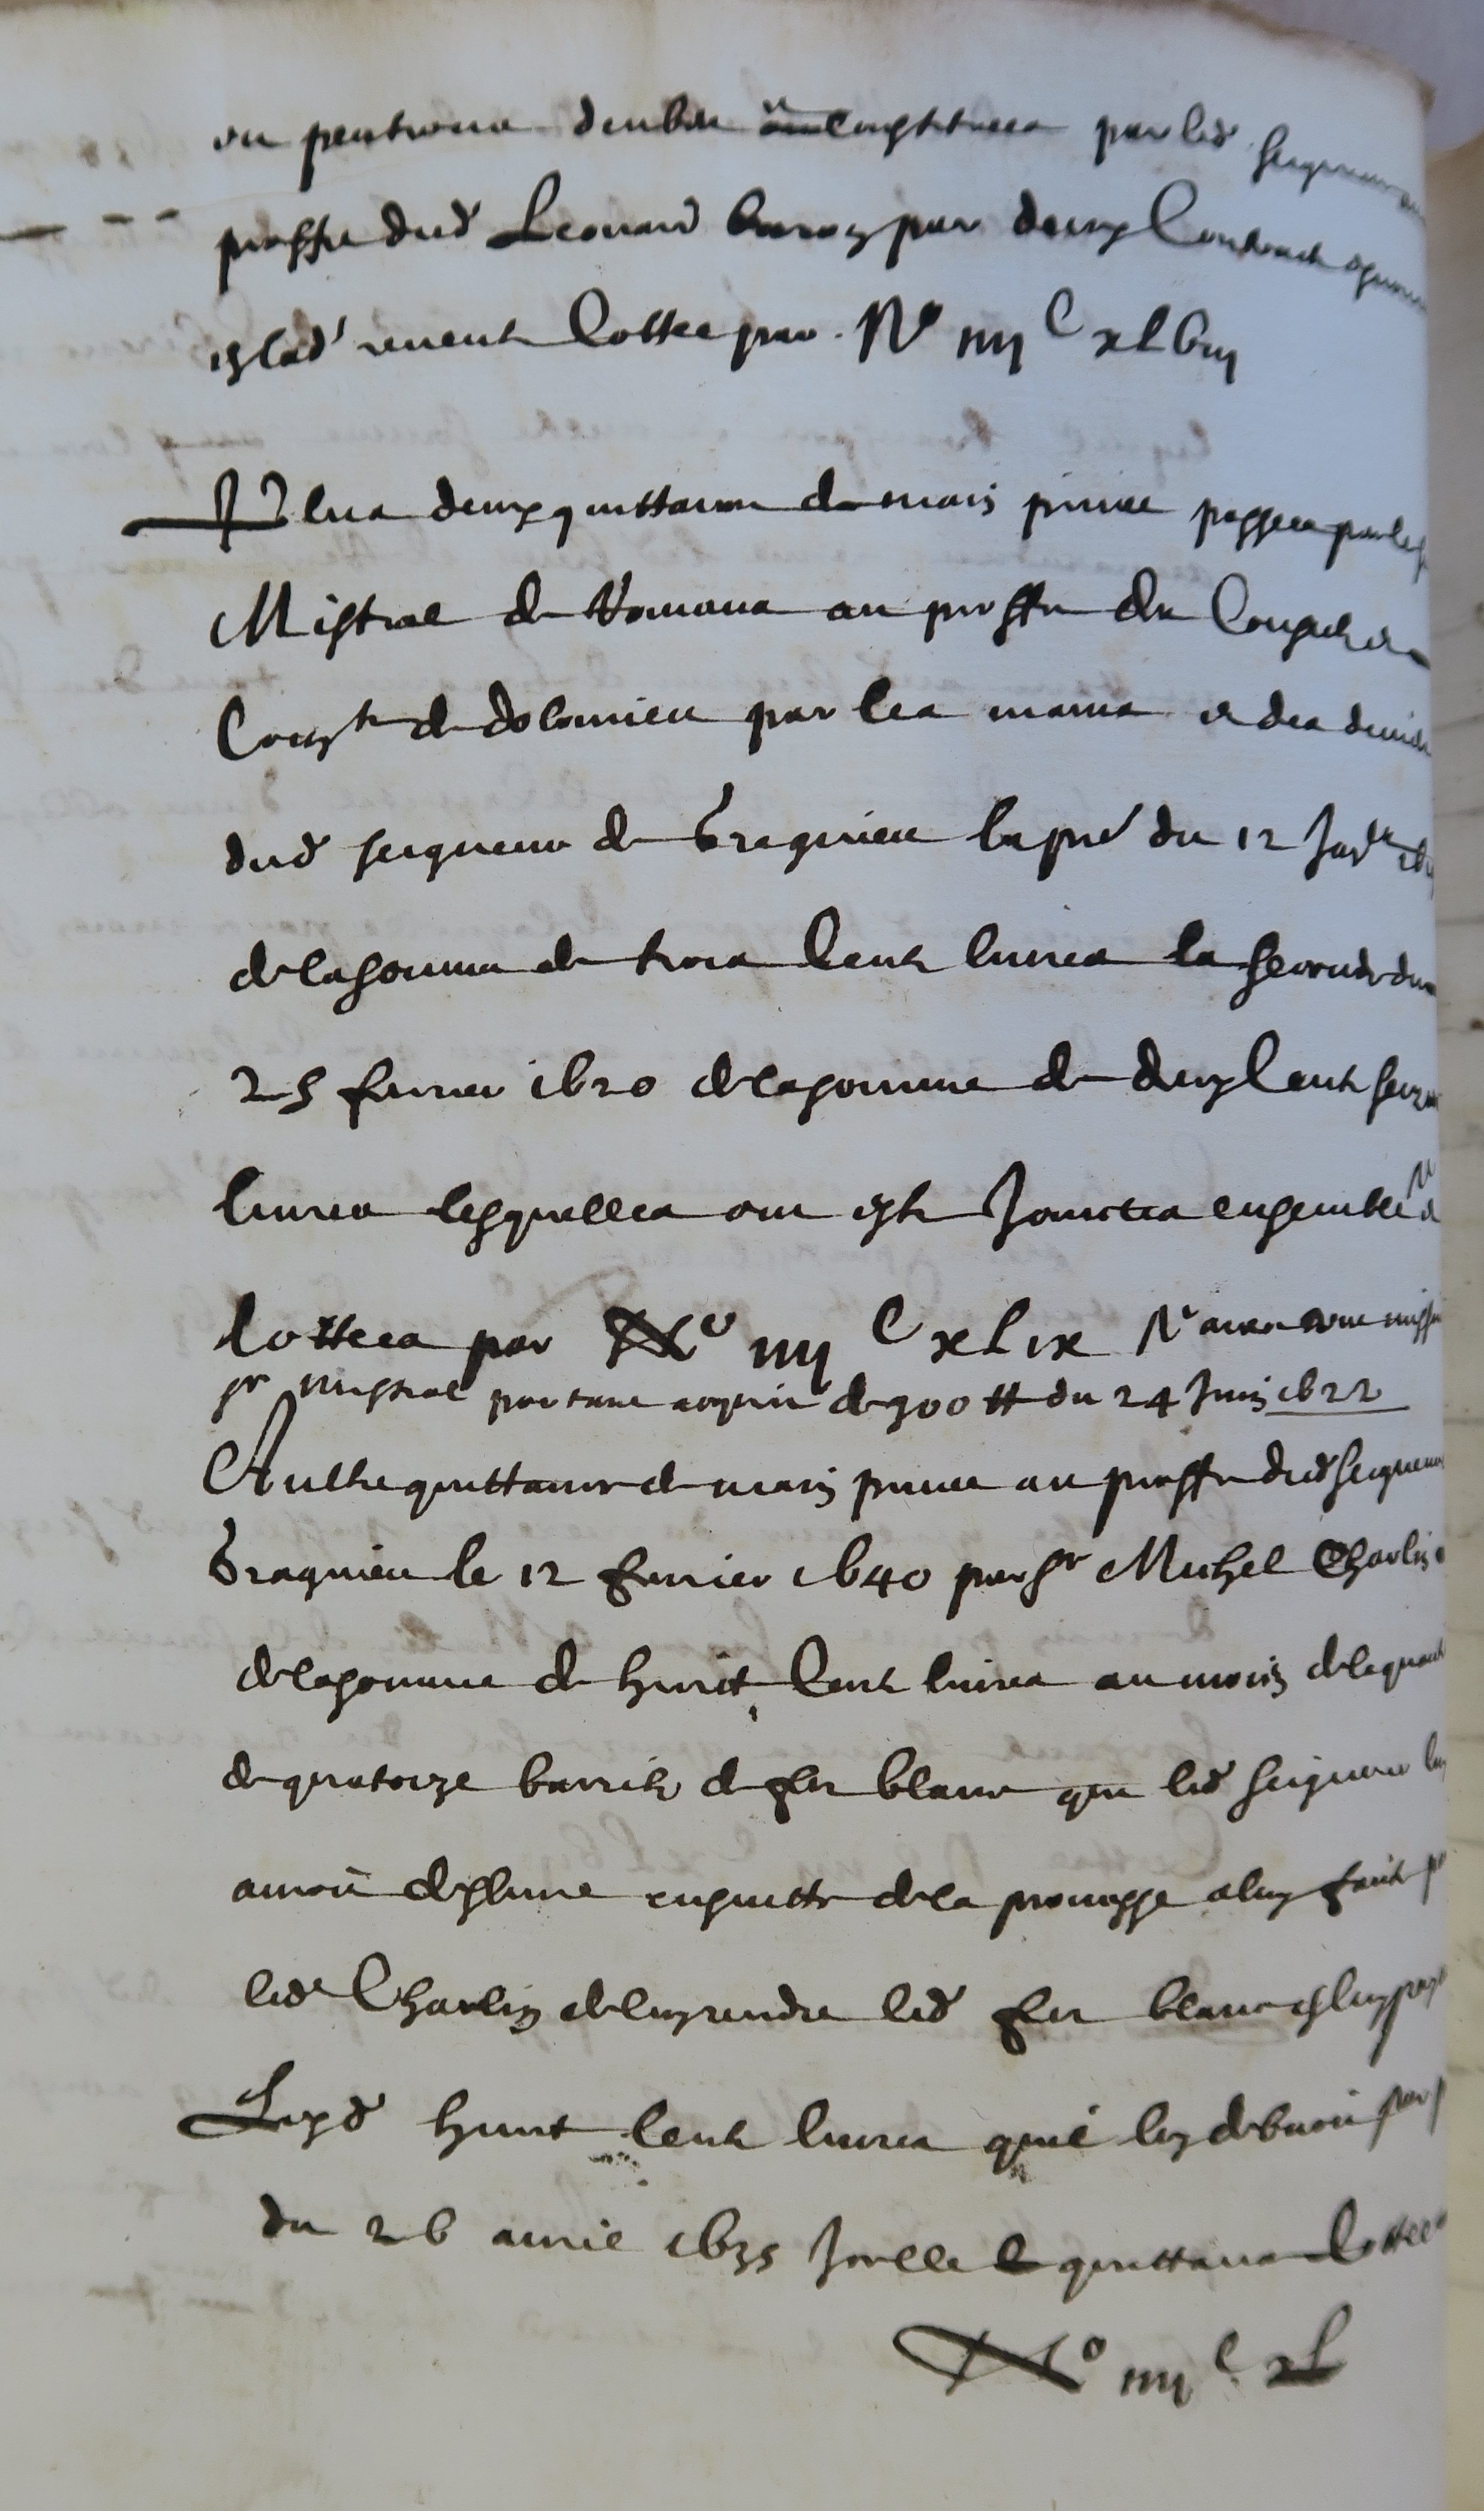 ou pentions deubes constituees par led seigneur au
proffit dud Leonard par deux contracts
esd cottee par N° iiii C xLviii
Plus deux quittance de main privee passees par le sr
Mistral de Romans au proffit des consulz et
Com.te de dolomieu par les mains et des deniers
dud seigneur de Bragnieu la pre du 12
de la somme de trois cent livres la seconde du
25 fevrier 1620 de la somme de deux cent seize
livres lesquelles ont este Joinctes ensemble et
cottees par N° iiii C xLix N° avec une missive
sr mistral portant acquit de 900 tt du 24 Juin 1622
Aultre quittance de main privee au proffit dud seigneur
Bragnieu le 12 fevrier 1640 par sr Michel Charlin
de la somme de huict cent livres au moien de la quantite
de quatorze barrils de fer blanc que led seigneur luy
auroit deslivre ensuitte de la promesse a luy faicte par
led Charlin de luy rendre led fer blanc et luy payer
Lesd huict cent livres qu'il luy debvoit par
du 26 avril 1635 Icelle quittance cottee
N° iiii C. xL